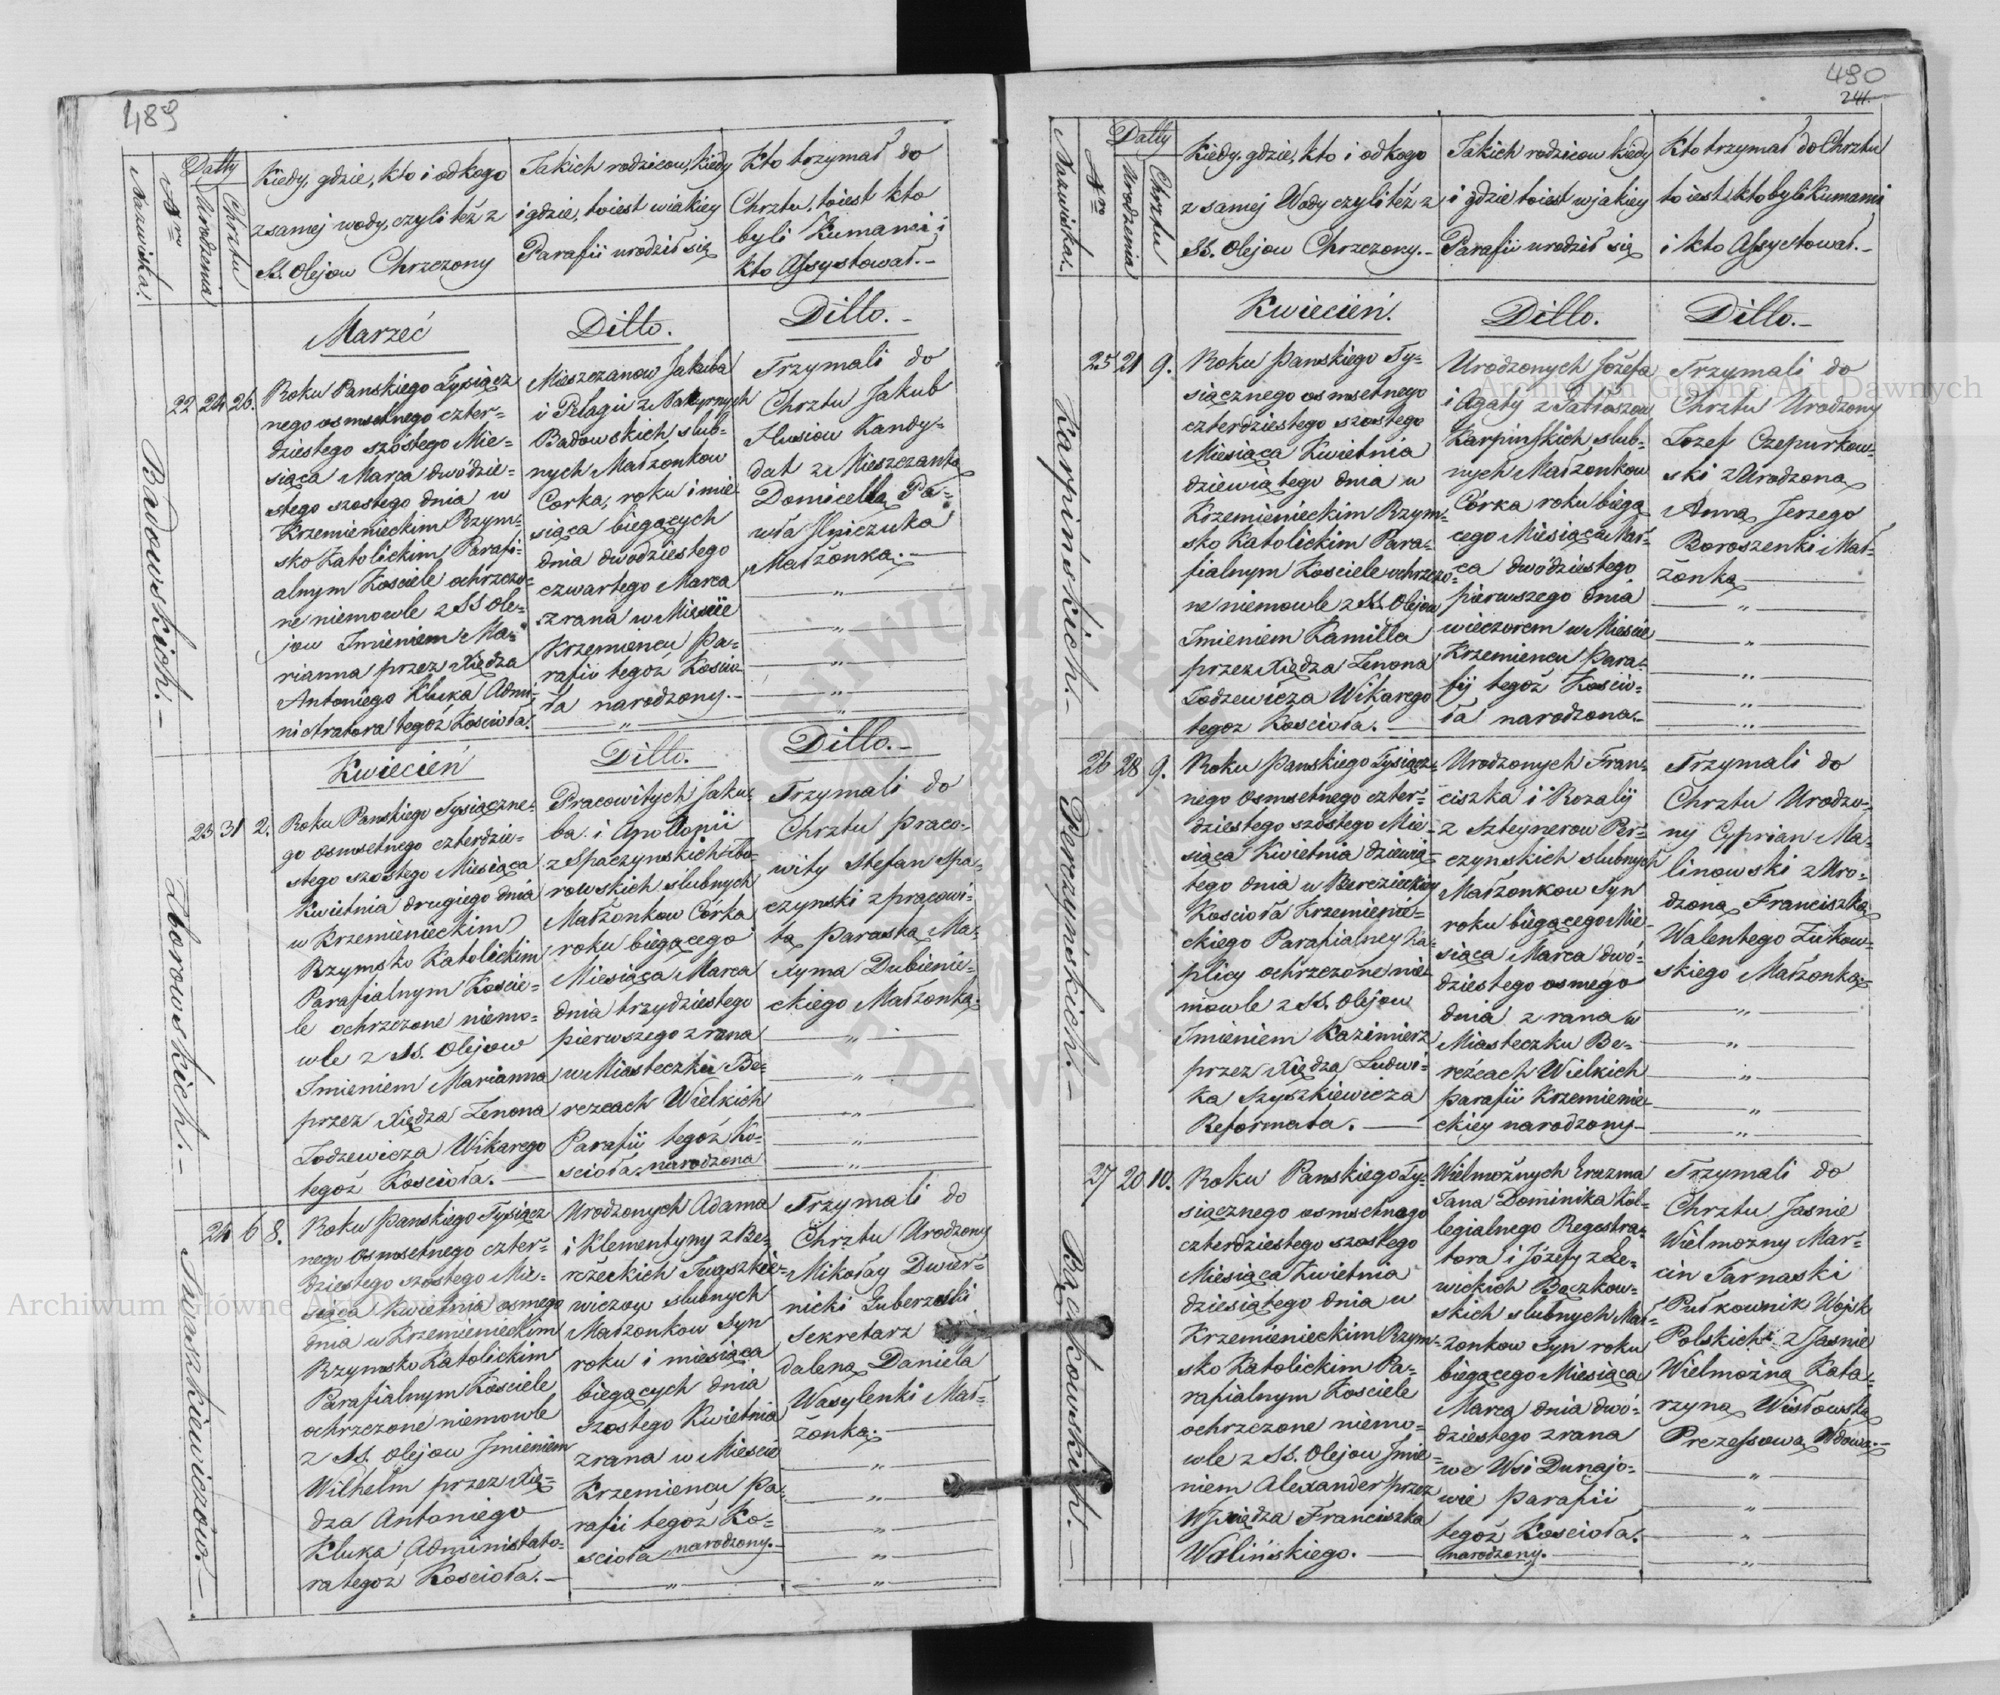 489
Nazwiska.
Nro
Datty
Urodzenia
Chrztu
Kiedy, gdzie, kto i od kogo
z samej wody, czyli też z
SS. Olejow Chrzczony
Jakich rodzicow, kiedy
i gdzie, to iest w iakiey
Parafii urodził się
Kto trzymał do
Chrztu, to iest kto
byli Kumami i
kto Assystował.-
Marzeć
Ditto.
Ditto.-
Badowskich.-
22 24 26.
Roku Panskiego Tysiącz
nego osmsetnego czter-
dziestego szostego Mie-
siąca Marca dwudzie-
stego szostego dnia w
Krzemienieckim Rzym-
sko Katolickim Parafi-
alnym Kosciele ochrzczo-
ne niemowle z SS Ole-
jow Imieniem Ma-
rianna przez Xiędza
Antoniego Kluka Admi-
nistratora tegoż Kościoła.
Mieszczanow Jakuba
i Pelagii z
Badowskich slub-
nych Małżonkow
Corka, roku i mie-
siąca biegących
dnia dwódziestego
czwartego Marca
z rana w Mieście
Krzemiencu Pa-
rafii tegoż Koscio-
ła narodzony.-
Trzymali do
Chrztu Jakub
Kandy-
dat z Mieszczanką
Domicellą Pa-
wła Ilniczuka
Małżonką.-
Kwiecień
Ditto.
Ditto.-
Borowskich.-
23 31 2.
Roku Panskiego Tysiączne-
go osmsetnego czterdzie-
stego szostego Miesiąca
Kwietnia drugiego dnia
w Krzemienieckim
Rzymsko Katolickim
Parafialnym Koscie-
le ochrzczone niemo-
wle z SS. Olejow
Imieniem Marianna
przez Xiędza Zenona
Lodzewicza Wikarego
tegoż Kosciola.-
Pracowitych Jaku-
ba i Apollonii
z Spaczynskich Bo-
rowskich slubnych
Małżonkow Córka
roku biegącego
Miesiąca Marca
dnia trzydziestego
pierwszego z rana
w Miasteczku Be-
rezcach Wielkich
Parafii tegoż Ko-
scioła narodzona
Trzymali do
Chrztu praco-
wity Stefan Spa-
czynski z pracowi-
tą Paraską Ma-
xyma Dubienie-
ckiego Małżonką.-
Iwaszkiewiczow.-
24 6 8.
Roku Panskiego Tysiącz
nego Osmsetnego czter-
dziestego szostego Mie-
siąca Kwietnia osmego
dnia w Krzemienieckim
Rzymsko Katolickim
Parafialnym Kosciele
ochrzczone niemowle
z SS. Olejow Imieniem
Wilhelm przez Xię-
dza Antoniego
Kluka Administrato-
ra tegoż Kosciola.-
Urodzonych Adama
i Klementyny z Be-
reżeckich Iwaszkie-
wiczow slubnych
Małżonkow Syn
roku i miesiąca
biegących dnia
szostego Kwietnia
z rana w Mieście
Krzemiencu Pa-
rafii tegoż Ko-
scioła narodzony.-
Trzymali do
Chrztu Urodzony
Mikołay Dwier-
nicki Guberzeski
Sekretarz
daleną Daniela
Wasylenki Mał-
żonką.-
490
241.
Nazwiska.
Nro
Datty
Urodzenia
Chrztu
Kiedy, gdzie, kto i od kogo
z samej Wody czyli też z
SS. Olejow Chrzczony.-
Jakich rodzicow kiedy
i gdzie to iest w jakiey
Parafii urodził się
Kto trzymał do Chrztu
to iest kto byli Kumami
i kto Assystował.-
Kwiecień.
Ditto.
Ditto.-
Karpińskich.-
25 21 9.
Roku Panskiego Ty-
siącznego osmsetnego
czterdziestego szostego
Miesiąca Kwietnia
dziewiątego dnia w
Krzemienieckim Rzym-
sko Katolickim Para-
fialnym Kosciele ochrzczo-
ne niemowle z SS. Olejow
Imieniem Kamilla
przez Xiędza Zenona
Lodzewicza Wikarego
tegoż Kosciola.-
Urodzonych Józefa
i Agaty z Jatroszow
Karpinskich slub-
nych Małżonkow
Córka roku biegą
cego Miesiąca Mar-
ca dwódziestego
pierwszego dnia
wieczorem w Mieście
Krzemiencu Para-
fij tegoż Koscio-
ła narodzona.-
Trzymali do
Chrztu Urodzony
Jozef Czepurkow-
ski z Urodzoną
Anną Jerzego
Boroszenki Mał-
żonką
Perczyńskich.-
26 28 9.
Roku Panskiego Tysiącz-
nego Osmsetnego czter-
dziestego szóstego Mie-
siąca Kwietnia dziewią-
tego dnia w Bereżeckiey
Kosciola Krzemienie-
ckiego Parafialney Ka-
plicy ochrzczone nie-
mowle z SS. Olejow
Imieniem Kazimierz
przez Xiędza Ludwi-
ka Szyszkiewicza
Reformata.-
Urodzonych Fran-
ciszka i Rozalij
z Szteynerow Per-
czynskich slubnych
Małżonkow Syn
roku biegącego Mie-
siąca Marca dwó-
dziestego osmego
dnia z rana w
Miasteczku Be-
reżcach Wielkich
Parafii Krzemienie-
ckiey narodzony-
Trzymali do
Chrztu Urodzo-
ny Cyprian Ma-
linowski z Uro-
dzoną Franciszką
Walentego Żukow-
skiego Małżonką.-
Bączkowskich.-
27 20 10.
Roku Panskiego Ty-
siącznego osmsetnego
czterdziestego szostego
Miesiąca Kwietnia
dziesiątego dnia w
Krzemienieckim Rzym-
sko Katolickim Pa-
rafialnym Kosciele
ochrzczone niemo-
wle z SS. Olejow Imie-
niem Alexander przez
W Xiędza Franciszka
Wolińskiego.-
Wielmożnych Erazma
Jana Dominika Kol-
legialnego Regestra-
tora i Józefy z Le-
wickich Bączkow-
skich slubnych Mał-
żonkow Syn roku
biegącego Miesiąca
Marca dnia dwó-
dziestego z rana
we Wsi Dunajo-
wie Parafii
tegoż Kosciola.
narodzony.-
Trzymali do
Chrztu Jasnie
Wielmożny Mar-
cin Tarnaski
Pułkownik Wojsk
Polskich z Jasnie
Wielmożną Kata-
rzyną Wisłowską
Prezessową Wdową.-
Archiwum Główne Akt Dawnych
Archiwum Główne Akt Dawnych